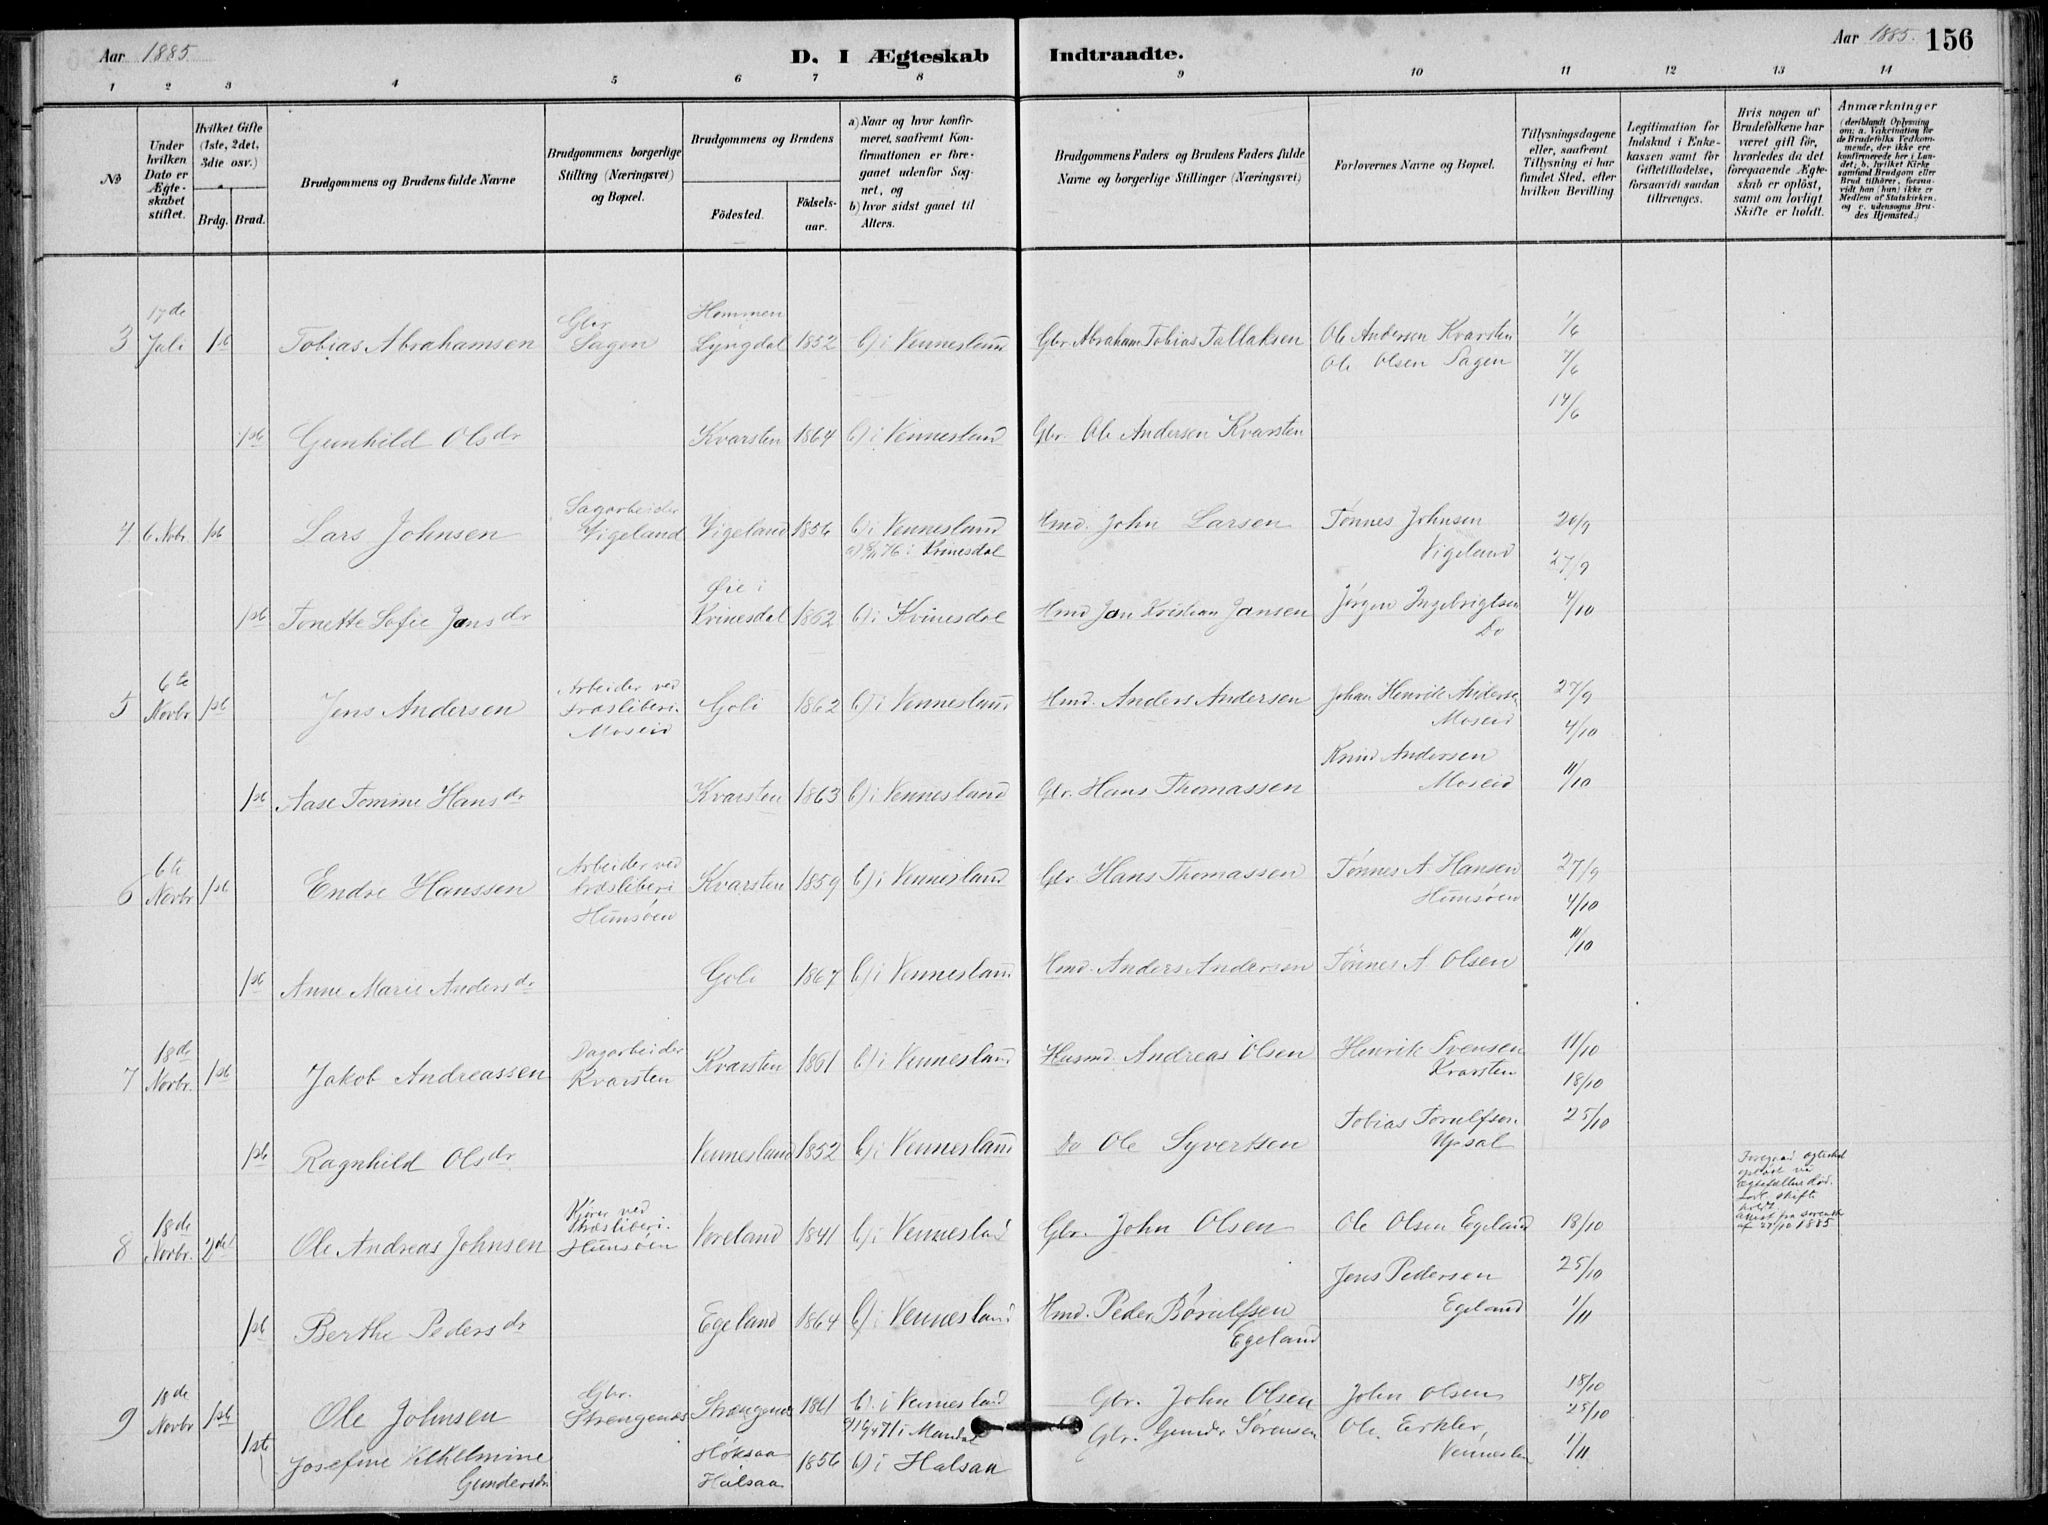 Aar 1885
D. I Ægteskab Indtraadte.
Aar 1885. 156
1 2 3 4 5 6 7 8 9 10 11 12 13 14
№
Under hvilken Dato er Ægteskabet stiftet.
Hvilket Gifte (1ste, 2det, 3die osv.)
Brdg. Brud.
Brudgommens og Brudens fulde Navne
Brudgommens borgerlige Stilling (Næringsvei) og Bopæl.
Brudgommens og Brudens
Fødested. Fødselsaar.
a) Naar og hvor konfirmeret, saafremt Konfirmationen er foregaaet udenfor Sognet, og
b) hvor sidst gaaet til Alters.
Brudgommens Faders og Brudens Faders fulde Navne og borgerlige Stillinger (Næringsvei)
Forlovernes Navne og Bopæl.
Tillysningsdagene eller, saafremt Tillysning ei har fundet Sted, efter hvilken Bevilling
Legitimation for Indskud i Enkekassen samt for Giftetilladelse, forsaavidt saadan tiltrænges.
Hvis nogen af Brudefolkene har været gift før, hvorledes da det foregaaende Ægteskab er opløst, samt om lovligt Skifte er holdt.
Anmærkninger (deriblandt Oplysning om: a. Vakcination for de Brudefolks Vedkommende, der ikke ere konfirmerede her i Landet; b. hvilket Kirkesamfund Brudgom eller Brud tilhører, forsaavidt han (hun) ikke er Medlem af Statskirken, og c. udensogns Brudes Hjemsted.)
3 17de Juli 1st Tobias Abrahamsen Gbr Sagen Hommen Lyngdal 1852 b) i Vennesland Gbr Abraham Tobias Tallaksen Ole Andersen Kvarsten 1/6
Ole Olsen Sagen 7/6
14/6
1st Gunhild Olsdr Kvarsten 1864 b) i Vennesland Gbr. Ole Andersen Kvarsten
4 6 Novbr. 1st Lars Johnsen Sagarbeider Vigeland Vigeland 1856 b) i Vennesland Hmd. John Larsen Tønnes Johnsen 20/9
Vigeland 27/9
1st Tonette Sofie Jansdr Øie i Kvinesdal 1862 b) i Kvinesdal Hmd Jan Kristian Jansen Jørgen Ingebrigtsen 4/10
Do
5 6te Novbr 1st Jens Andersen Arbeider ved Træsliberi. Moseid Goli 1862 b) i Vennesland Hmd. Anders Andersen Johan Henrik Andersen 27/9
Moseid 4/10
Knud Andersen
Moseid 11/10
1st Aase Tomine Hansdr Kvarsten 1863 b) i Vennesland Gbr. Hans Thomassen
6 6te Novbr 1st Endre Hanssen Arbeider ved træsliberi Hunsøen Kvarsten 1859 b) i Vennesland Gbr. Hans Thomassen Tønnes A. Hansen 27/9
Hunsøen 4/10
11/10
1st Anne Marie Andersdr Goli 1867 b) i Vennesland Hmd. Anders Andersen Tønnes A Olsen
7 18de Novbr. 1st Jakob Andreassen Dagarbeider Kvarsten Kvarsten 1861 b) i Vennesland Husmd. Andreas Olsen Henrik Svensen 11/10
Kvarsten 18/10
Tobias Torulfsen 25/10
Upsal
1st Ragnhild Olsdr Vennesland 1852 b) i Vennesland Do Ole Syvertsen
8 18de Novbr. 2det Ole Andreas Johnsen Kjører ved Træsliberi. Hunsøen Voreland 1841 b) i Vennesland Gbr. John Olsen Ole Olsen Egeland 18/10
Jens Pedersen 25/10
Egeland 1/11
1st Berthe Pedersdr Egeland 1864 b) i Vennesland Hmd. Peder Børulfsen
Egeland
9 18de Novbr 1st Ole Johnsen Gbr. Strengenæs Strængenæs 1861 b) i Vennesland Gbr. John Olsen John Olsen 18/10
25/10
1st Josefine Vilhelmine Gundersdr Høksaa Halsaa 1856 b) i Halsaa Gbr. Gunder Sørensen Ole 1/11